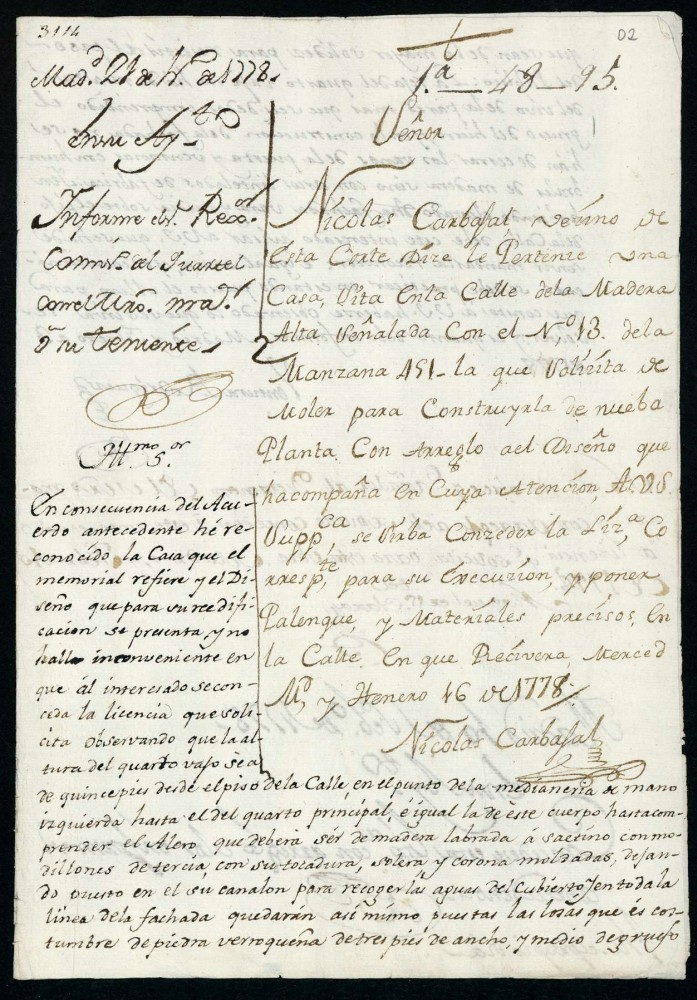 3114
D2
1.ª — 48 — 95.
Mad.d 21 de H.º de 1778.
En su Ay.to
Informe el S.r Rexor.
Comis.º del Quartel
con el Mro. mar.
ò su Teniente
Señor
Nicolas Carbasal vezino de
Esta Corte Dize le Pertenze una
Casa, Sita En la Calle de la Madera
Alta Señalada Con el N.º 13. de la
Manzana 451 - la que Solizita de
Moler para Construyrla de nueba
Planta Con Arreglo a el Diseño que
hacompaña en Cuya Atenzion, A.V.S.
Supp.ca se Sirba Conzeder la Liz.a Co
rresp.te para su Execuzion, y poner
Palenque, y Materiales precisos, En
la Calle. En que Recivera Merced
M.d y Henero 16 de 1778
Nicolas Carbasal
Ill.mo S.or
En consecuencia del Acu-
erdo antecedente hé re-
conocido la Casa que el
memorial refiere y el Di-
seño que para su reedifi-
cacion se presenta, y no
hallo inconveniente en
que al interesado se con-
ceda la licencia que soli-
cita observando que la al-
tura del quarto vajo sea
de quince pies desde el piso de la Calle, en el punto de la medianeria de mano
izquierda hasta el del quarto principal, é igual la de este cuerpo hasta com-
prender el Alero, que deberá sér de madera labrada á saetino con mo-
dillones de tercia, con su tocadura, solera y corona moldadas, dejan-
do puesto en el su canalon para recoger las aguas del Cubierto, y en toda la
linea de la fachada quedarán asimismo puestas las losas que és cos-
tumbre de piedra verroqueña de tres pies de ancho, y medio de grueso